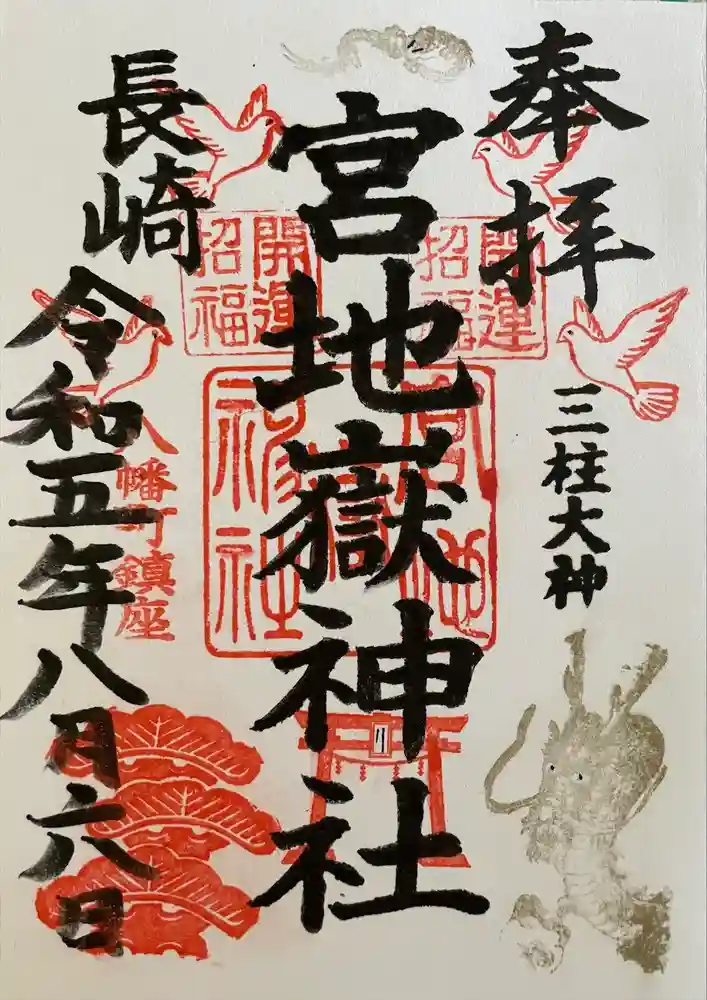 奉拝
三柱大神
宮地嶽神社
開運
招福
開運
招福
宮地嶽
神社
長崎
八幡町鎮座
令和五年八月六日